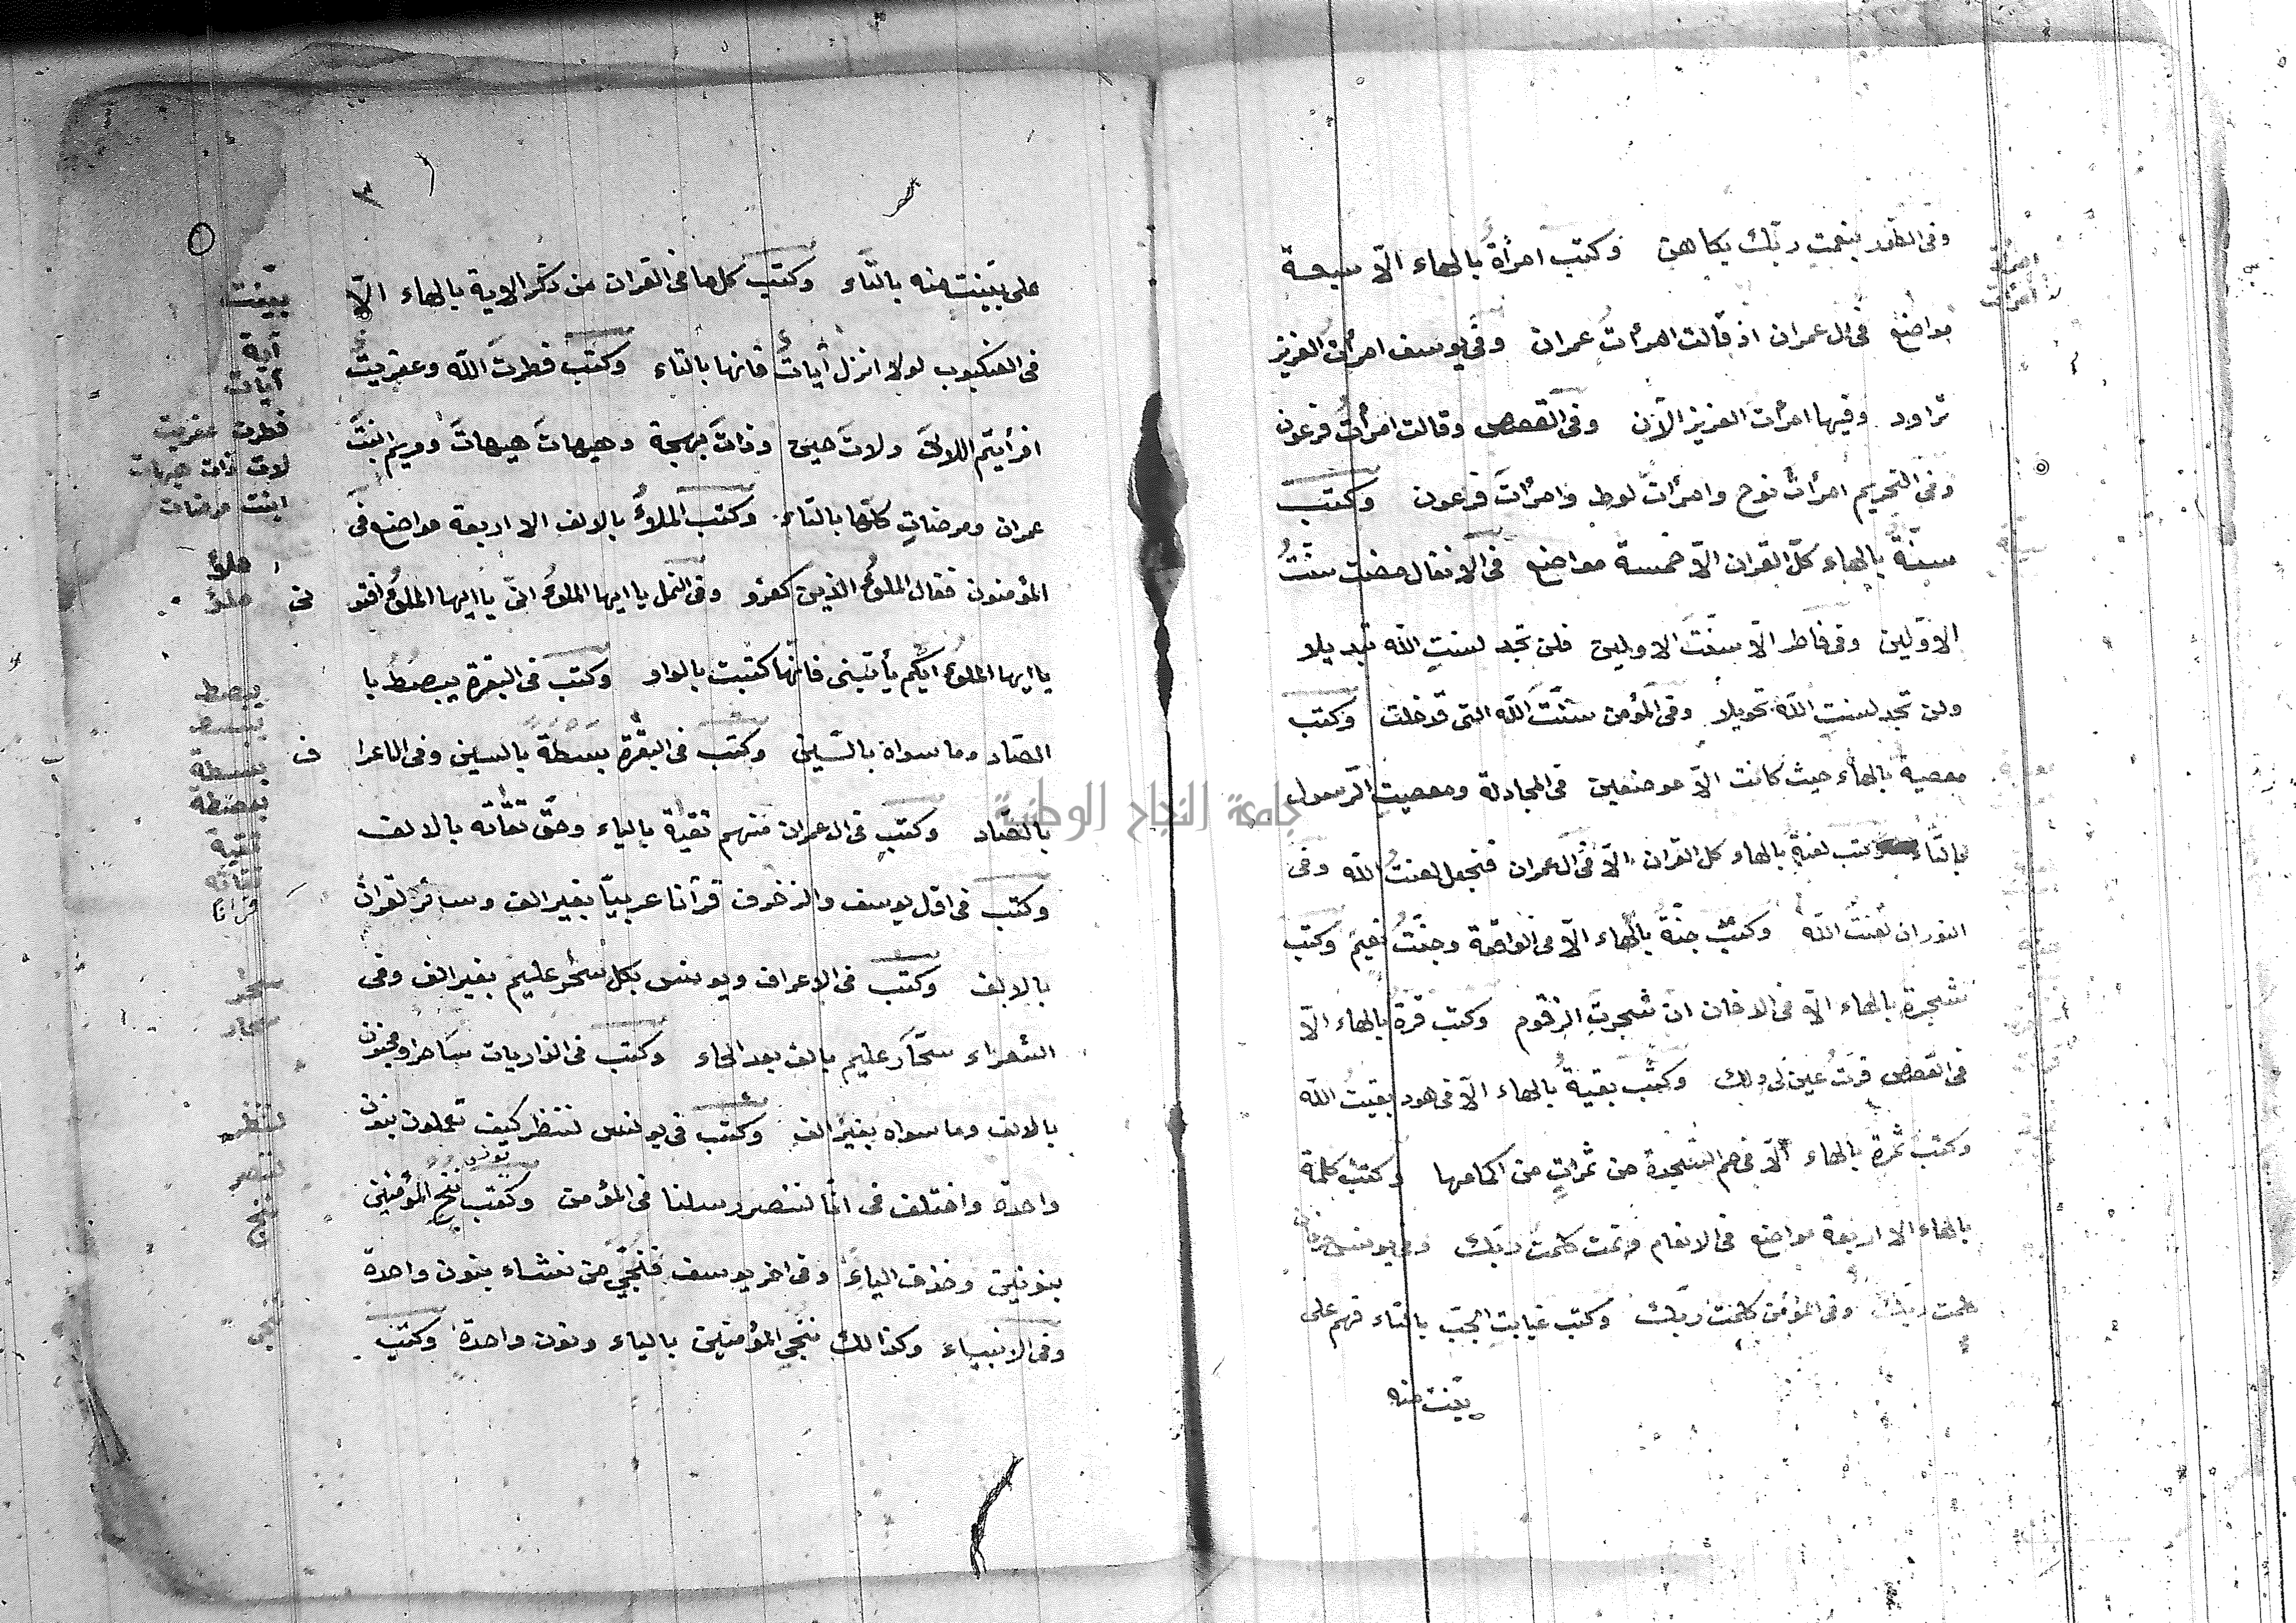 وفى الطور بنعمت ربّك بكاهن وكتب امرأة بالهاء الّا سبعة
مواضع فى ال عمران اذ قالت امرأت عمران وفى يوسف امرأت العزيز
تراود وفيها امرأت العزيز الآن وفى القصص وقالت امرأت فرعون
وفى التحريم امرأت نوح وامرأت لوط وامرأت فرعون وكتب
سنّة بالهاء كلّ القران الّا خمسة مواضع فى الانفال مضت سنّت
الاوّلين وفى فاطر الّا سنّت الاولين فلن تجد لسنت الله تبديلا
ولن تجد لسنت الله تحويلا وفى المؤمن سنّت الله التى قد خلت وكتب
معصية بالهاء حيث كانت الّا موضعين فى المجادلة ومعصيت الرّسول
بالتّاء وكتب لعنة بالهاء كل القران الّا فى ال عمران فنجعل لعنت الله وفى
النور ان لعنت الله وكتب جنّة بالهاء الّا فى الواقعة وجنّت نعيم وكتب
شجرة بالهاء الّا فى الدخان انّ شجرت الزقوم وكتب قرة بالهاء الّا
فى القصص قرت عين لى ولك وكتب بقية بالهاء الّا فى هود بقيت الله
وكتب ثمرة بالهاء الّا فى حم السّجدة من ثمرات من اكمامها وكتب كلمة
بالهاء الا اربعة مواضع فى الانعام وتمت كلمت ربّك وفى يونس
كلمت ربّك وفى المؤمن كلمت ربّك وكتب غيابت الجبّ بالتاء فهم على
بيّنت منه
امرأة
امرأت
على بيّنت منه بالتّاء وكتب كل ما فى القران من ذكر الاية بالهاء الّا
فى العنكبوت لولا انزل آيات فانها بالتاء وكتب فطرت الله وعفريت
افرأيتم اللات ولات حين وذات بهجة وهيهات هيهات ومريم ابنت
عمران ومرضات كلّها بالتاء وكتب الملؤ بالالف الا اربعة مواضع فى
المؤمنون فقال الملؤ الذين كفرو وفى النمل يا ايها الملؤ انّى يا ايها الملؤ افتو نى
يا ايها الملؤ ايّكم يأتينى فانّها كتبت بالواو وكتب فى البقرة يبصط با
الصّاد وما سواه بالسّين وكتب فى البقرة بسطة بالسين وفى الاعرا ف
بالصّاد وكتب فى ال عمران منهم تقية بالياء وحقّ تقاته بالالف
وكتب فى اوّل يوسف والزخرف قرآنا عربيّا بغير الف وسائر القران
بالالف وكتب فى الاعراف ويونس بكل سحر عليم بغير الف وفى
الشعراء سحّار عليم بالف بعد الحاء وكتب فى الذاريات ساحر او مجنون
بالالف وما سواه بغير الف وكتب فى يونس لننظر كيف تعملون بنون
واحدة واختلف فى انّا لننصر رسلنا فى المؤمن وكتب ننج المؤمنين
يونس
بنونين وحذف الياء وفى اخر يوسف فنجّى من نشاء بنون واحدة
وفى الانبياء وكذالك ننجى المؤمنين بالياء ونون واحدة وكتب
بيّنت
آية
آيات
فطرت عفريت
لات ذات هيهات
ابنت مرضات
ملؤ
ملؤ
يبصط
يبسط
بسطة
بصطة
تقية
تقاته
قرآنا
سحر
سحار
لننظر
لننصر
ننج
ننجى
جامعة النجاح الوطنية